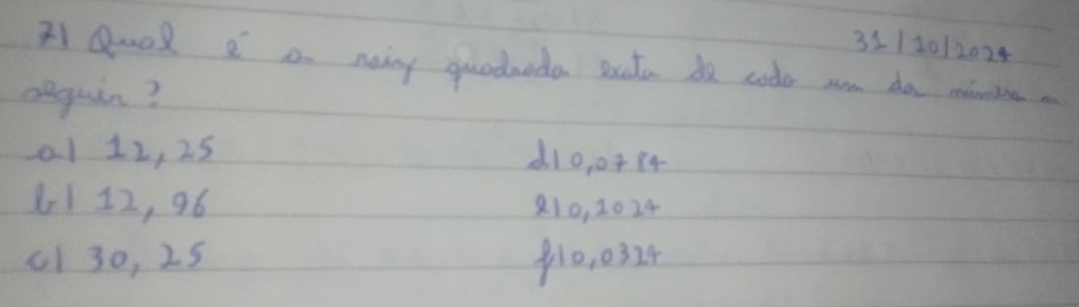 31/10/2024
7) Qual é a raiz quadrada exata de cada um dos números a
seguir?
a) 12,25
b) 12,96
c) 30,25
d) 0,0784
e) 0,1024
f) 0,0324